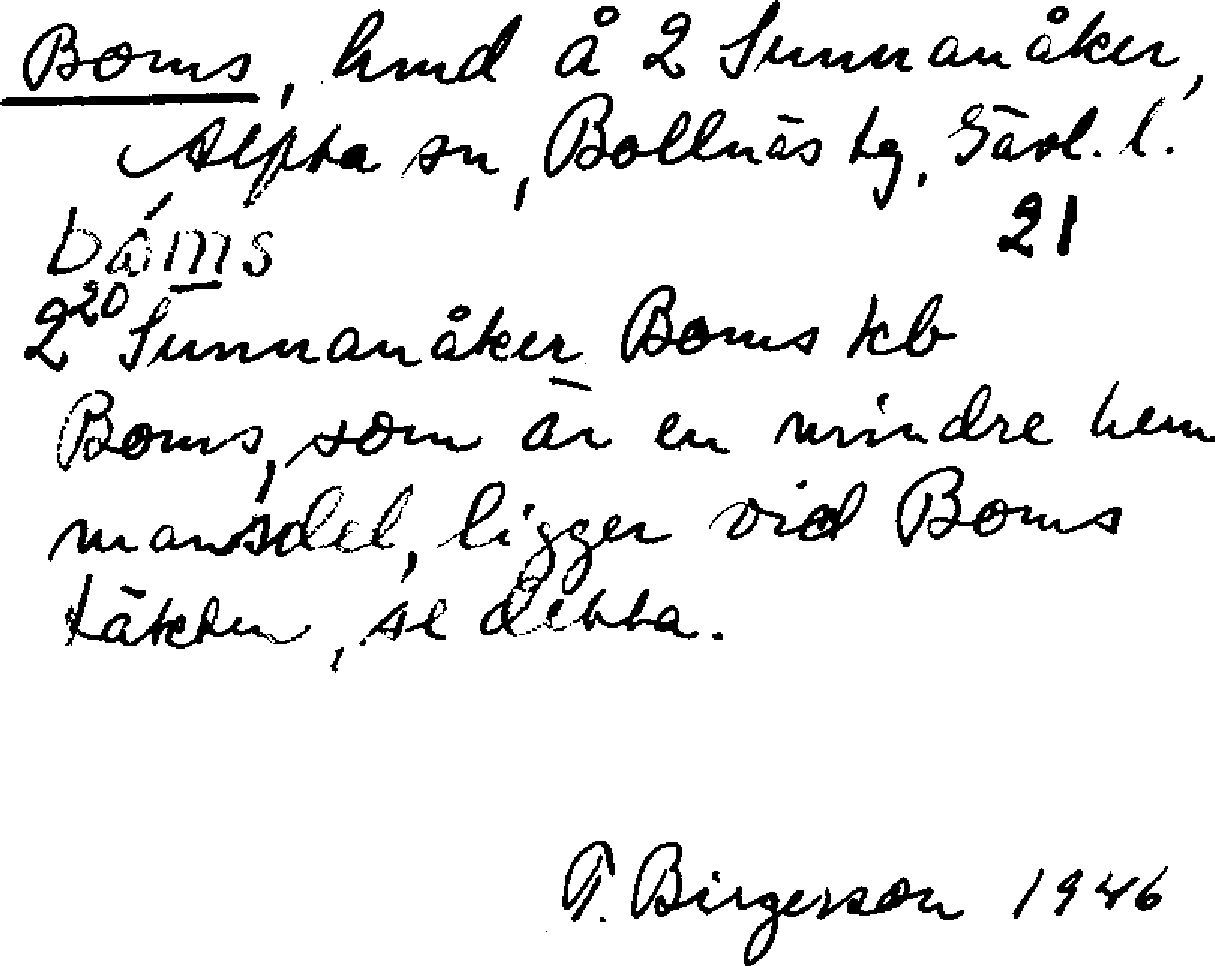 Boms, hmd å 2 Sunnanåker,
Alfta sn, Bollnäs tg, Gävl. l.
båms 21
2²⁰ Sunnanåker Boms kb
Boms, som är en mindre hem
mansdel, ligger vid Boms
täkten, se detta.
T. Birgerson 1946